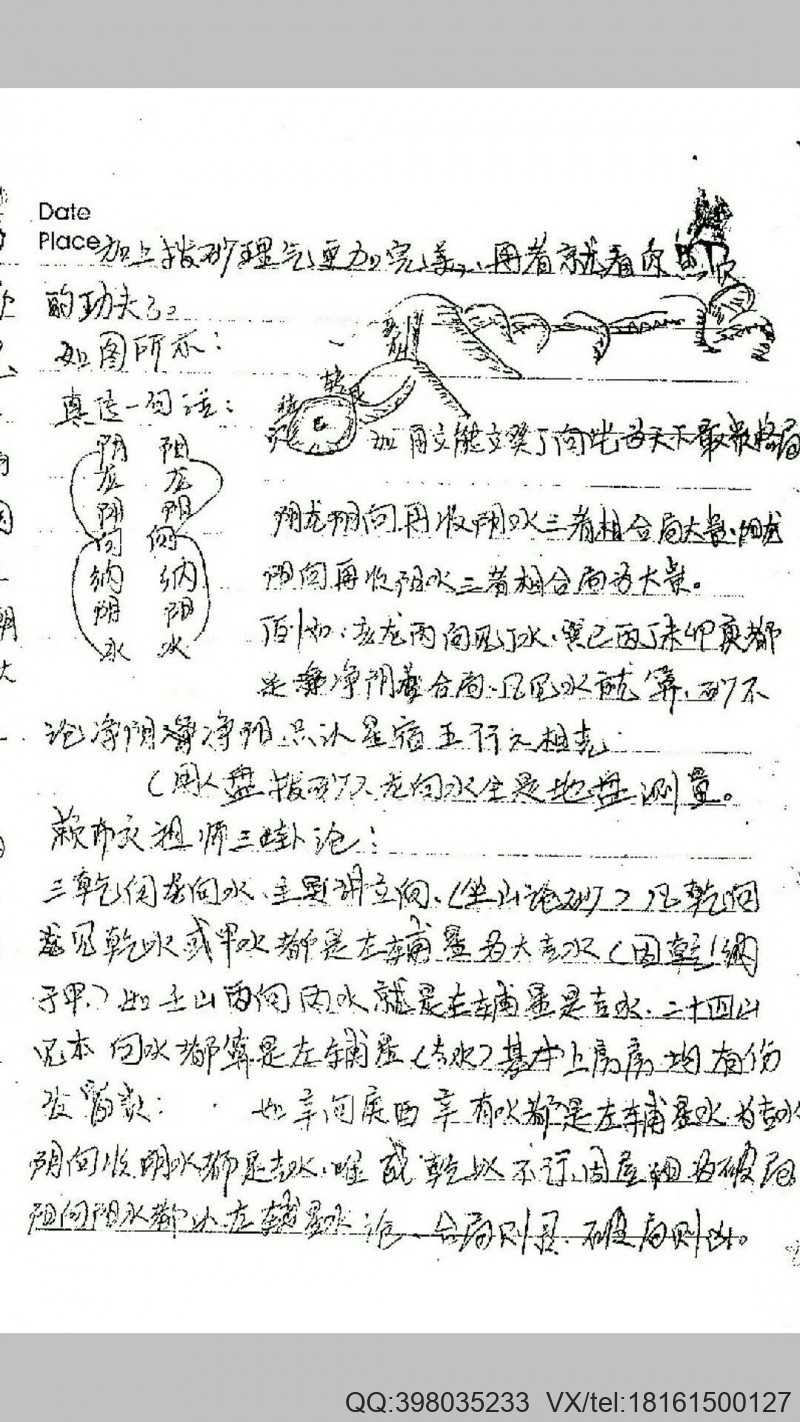 Date
Place
加上拨砂理气更加完美、再看就看你
的功夫了。
如图所示：
真传一句话：
阴龙阴向纳阴水
阳龙阳向纳阳水
如再立能立癸丁向此为天下最
阴龙阴向再收阴水三者相合局大贵、阳龙
阳向再收阳水三者相合局为大贵。
例如：亥龙丙向见丁水、巽巳丙丁未卯庚都
是净阴合局、凡见水就算、砂不
论净阴净阳、只认星宿五行之相克
（用人盘拨砂）、龙向水全是地盘测量。
赖布衣祖师三卦论：
三乾向龙向水、主要讲立向、（坐山论砂）凡乾向
见乾水或甲水都是左辅星为大吉水（因乾纳
于甲、）如壬山丙向丙水就是左辅星是吉水、二十四山
见本向水都算是左辅星（吉水）基本上房房均有份
发富贵： 如辛向庚酉辛有水都是左辅星水为吉水
阴向收阴水都是吉水、唯戌乾水不行、因是阳为破局
阳向阳水都以左辅星水论、合局则贵、破局则凶。
QQ:398035233 VX/tel:18161500127